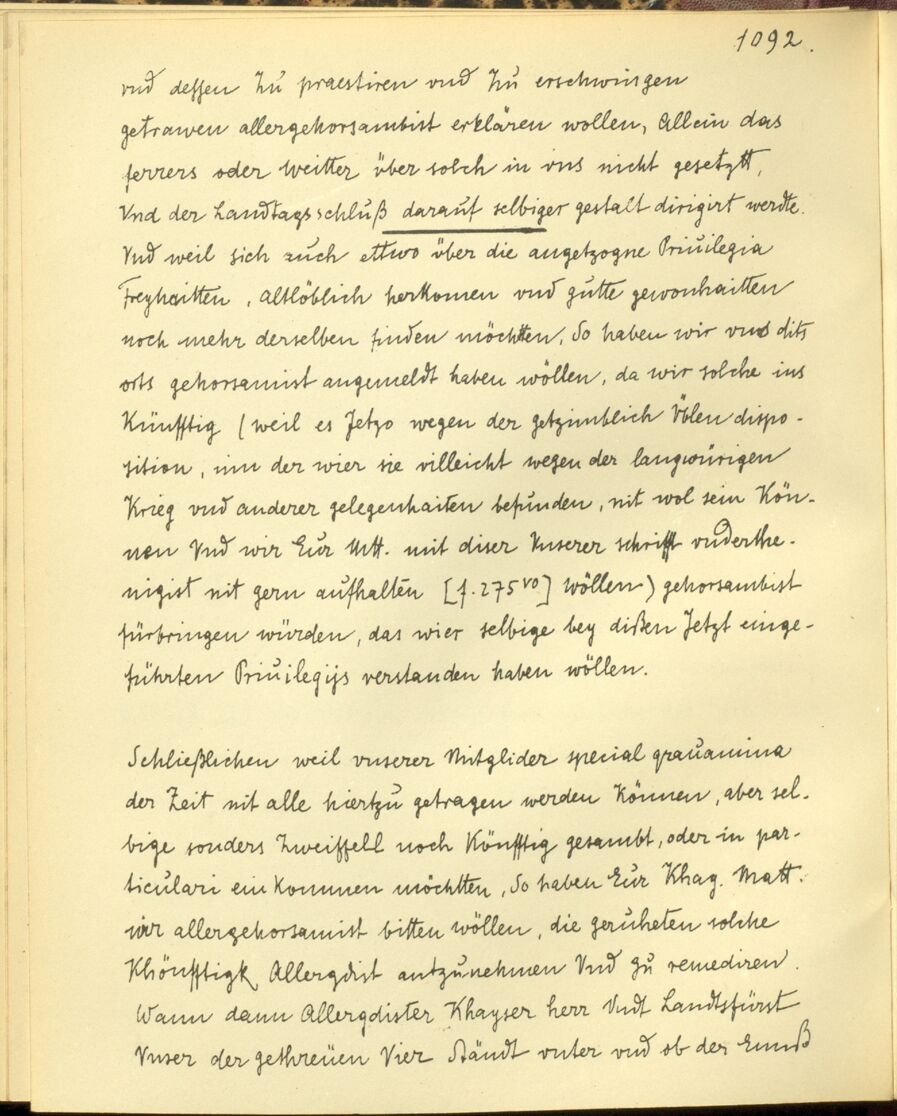 1092.
vnd dessen Zu praestiren vnd Zu erschwingen
getrawen allergehorsambist erklären wollen, Allein das
ferrers oder weitter über solch in vns nicht gesetztt,
Vnd der Landtagsschluß darauf selbiger gestalt dirigirt werdte.
Vnd weil sich auch ettwo über die angetzogne Priuilegia
Freyhaitten, altlöblich herkomen vnd gutte gewonhaitten
noch mehr derselben finden möchten, So haben wir vnß dits
orts gehorsamist angemeldt haben wöllen, da wir solche ins
Künfftig (weil es Jetzo wegen der getzimblich Völen dispo-
sition, inn der wier sie villeicht wegen der langwürigen
Krieg vnd anderer gelegenhaiten befunden, nit wol sein Kön-
nen Vnd wir Eur Mtt. mit diser Vnserer schrifft vnderthe-
nigist nit gern aufhalten [f. 275 vo] wöllen) gehorsambist
fürbringen würden, das wier selbige bey dißen Jetzt einge-
führten Priuilegijs verstanden haben wöllen.
Schließlichen weil vnserer Mitglider special grauamina
der Zeit nit alle hiertzu getragen werden Können, aber sel-
bige sonders Zweiffell noch Könfftig gesambt, oder in par-
ticulari einkommen möchtten, So haben Eur Khay. Matt.
wir allergehorsamist bitten wöllen, die geruheten solche
Khönfftigk Allergdist antzunehmen Vnd zu remediren.
Wann dann Allergdister Khayser herr Vndt Landtsfürst
Vnser der gethreüen Vier Ständt vnter vnd ob der Ennß